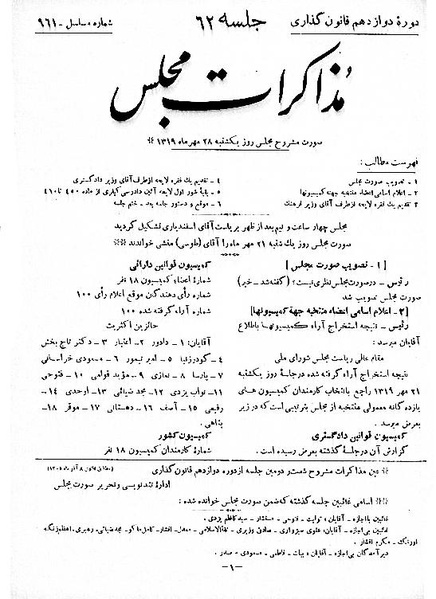 دورهٔ دوازدهم قانون گذاری
جلسه ۶۲
شماره مسلسل - ۹۶۱
مذاکرات مجلس
صورت مشروح مجلس روز یکشنبه ۲۸ مهر ماه ۱۳۱۹
فهرست مطالب :
۱ - تصویب صورت مجلس
۲ - اعلام اسامی اعضاء منتخبه جهة کمیسیونها
۳ - تقدیم یک فقره لایحه از طرف آقای وزیر فرهنگ
۴ - تقدیم یک فقره لایحه از طرف آقای وزیر دادگستری
۵ - بقیهٔ شور اول لایحه آئین دادرسی کیفری از ماده ۴۰۰ تا ۴۱۰
۶ - موقع و دستور جلسه بعد - ختم جلسه
مجلس چهار ساعت و نیم بعد از ظهر بریاست آقای اسفندیاری تشکیل گردید
صورت مجلس روز یک شنبه ۲۱ مهر ماه را آقای (طوسی) منشی خواندند
[ ۱ - تصویب صورت مجلس ]
رئیس - در صورت مجلس نظری نیست؛ (گفته شد - خیر)
صورت مجلس تصویب شد
[ ۲ - اعلام اسامی اعضاء منتخبه جهة کمیسیونها ]
رئیس - نتیجه استخراج آراء کمیسیونها باطلاع
آقایان میرسد :
مقام عالی ریاست مجلس شورای ملی
نتیجه استخراج آراء گرفته شده در جلسهٔ روز یکشنبه
۲۱ مهر ۱۳۱۹ راجع بانتخاب کارمندان کمیسیون های
یازده گانه معمولی منتخبه از مجلس بترتیبی است که در زیر
بعرض میرسد.
کمیسیون قوانین دادگستری
گزارش آن در جلسهٔ گذشته بعرض رسیده است.
کمیسیون قوانین دارائی
شمارهٔ اعضاء کمیسیون ۱۸ نفر
شماره رأی دهندگان موقع اعلام رأی ۱۰۰
شماره آراء گرفته شده ۱۰۰
حائزین اکثریت
آقایان : ۱ - دادور ۲ - اعتبار ۳ - دکتر تاج بخش
۴ - گودرزنیا ۵ - امیر تیمور ۶ - مسعودی خراسانی
۷ - پارسا ۸ - نمازی ۹ - مؤید قوامی ۱۰ - فتوحی
۱۱ - نواب یزدی ۱۲ - مجد ضیائی ۱۳ - اوحدی ۱۴ -
رفیعی ۱۵ - آصف ۱۶ - دهستانی ۱۷ - موقر ۱۸ -
یمین.
کمیسیون کشور
شمارهٔ کارمندان کمیسیون ۱۸ نفر
عین مذاکرات مشروح شصت و دومین جلسه از دوره دوازدهم قانون گذاری
ادارهٔ تندنویسی و تحریر صورت مجلس
اسامی غائبین جلسه گذشته که ضمن صورت مجلس خوانده شده :